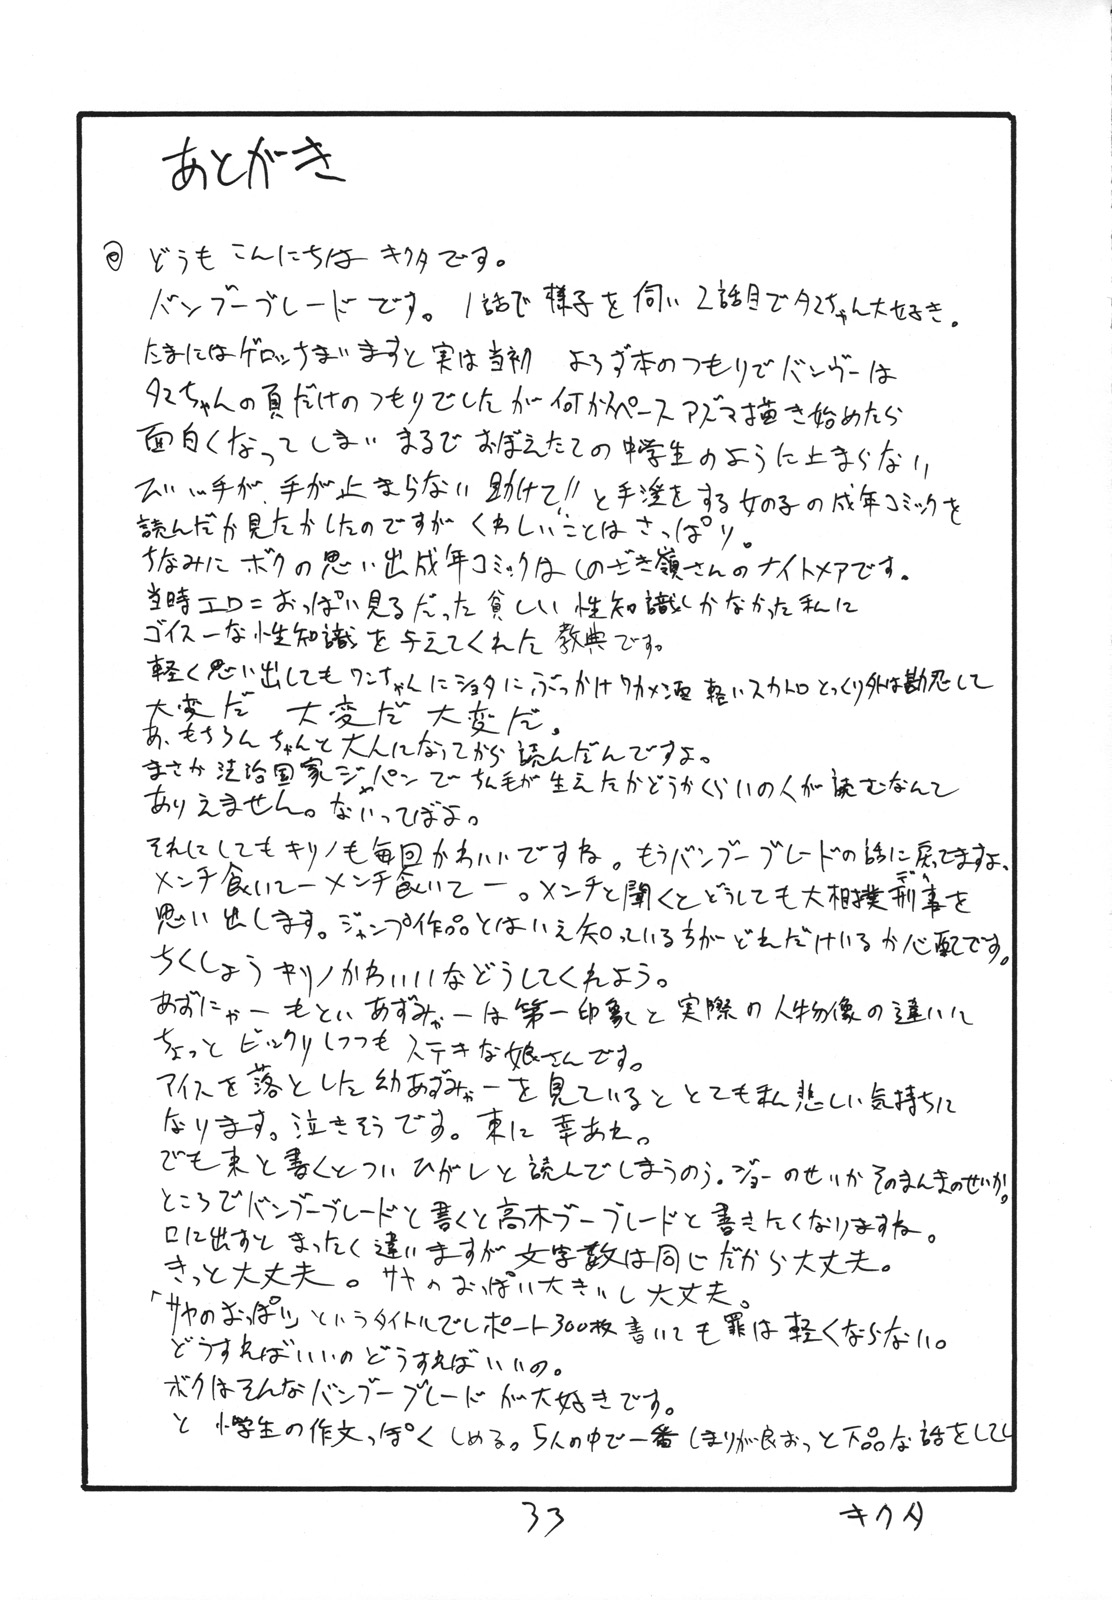 あとがき
どうも こんにちは キクタです。
バンブーブレードです。1話で様子を伺い2話目でタマちゃん大好き。
たまにはゲロッちまいますと実は当初 よろず本のつもりでバンブーは
タマちゃんの頁だけのつもりでしたが何かスペース アズマ描き始めたら
面白くなってしまい まるで おぼえたての中学生のように止まらない
手が、手が止まらない 助けて!! と手淫をする女の子の成年コミックを
読んだか見たかしたのですが くわしいことは さっぱり。
ちなみに ボクの思い出成年コミックは しのざき嶺さんのナイトメアです。
当時エロ=おっぱい見るだった貧しい 性知識しかなかった私に
ゴイスーな性知識を与えてくれた 教典です。
軽く思い出しても ワンちゃんにショタに ぶっかけ ワカメ酒 軽いスカトロ とっくり外は勘忍して
大変だ 大変だ 大変だ。
あ、もちろん ちゃんと大人になってから 読んだんですよ。
まさか 法治国家ジャパンで ちん毛が生えたかどうかくらいの人が読むなんて
ありえません。ないってばよ。
それにしてもキリノも毎回かわいいですね。もうバンブーブレードの話に戻ってますよ、
メンチ食いてーメンチ食いてー。メンチと聞くとどうしても大相撲刑事を
思い出します。ジャンプ作品とはいえ知っている方がどれだけいるか心配です。
ちくしょう キリノかわいいなどうしてくれよう。
あずにゃーもといあずみゃーは第一印象と実際の人物像の違いに
ちょっと ビックリしつつも ステキな娘さんです。
アイスを落とした幼あずみゃーを見ていると とても私悲しい気持ちに
なります。泣きそうです。東に 幸あれ。
でも東と書くとつい ひがしと読んでしまうのう。ジョーのせいか そのまんまのせいか。
ところでバンブーブレードと書くと高木ブーブレードと書きたくなりますね。
口に出すと まったく違いますが文字数は同じだから大丈夫。
きっと大丈夫。サヤのおっぱい大きいし大丈夫。
「サヤのおっぱい」というタイトルでレポート300枚書いても罪は軽くならない。
どうすればいいのどうすればいいの。
ボクはそんなバンブーブレードが大好きです。
と 小学生の作文っぽくしめる。5人の中で一番 しまりが良おっと下品な話をしてし
33
キクタ